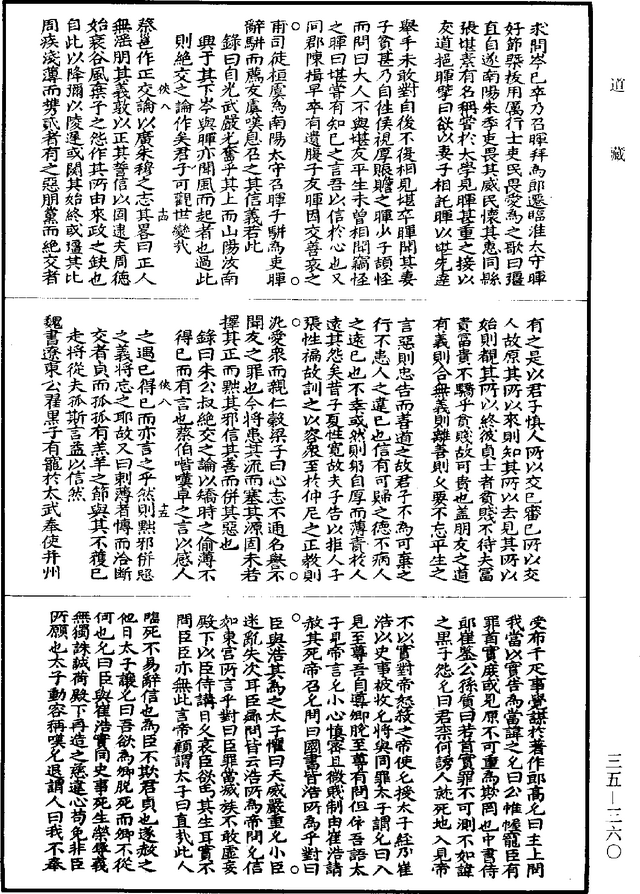 道藏
求問岑已卒乃召暉拜為郎遷臨淮太守暉
好節槩拔用厲行士吏民畏愛為之歌曰彊
直自遂南陽朱季吏畏其威民懷其惠同縣
張堪素有名稱嘗於太學見暉甚重之接以
友道把暉臂曰欲以妻子相託暉以堪先達
舉手未敢對自後不復相見堪卒暉聞其妻
子貧甚乃自往候視厚賑贍之暉少子頡怪
而問曰大人不與堪友平生未曾相聞竊怪
之暉曰堪嘗有知己之言吾以信於心也又
同郡陳揖早卒有遺腹子友暉因交善哀之
甫司徒桓虞為南陽太守召暉子駢為吏暉
辭駢而薦友虞嘆息召之其信義若此
錄曰自光武嚴光奮乎其上而山陽汝南
興于其下岑與暉亦聞風而起者也過此
則絕交之論作矣君子可觀世變哉
俠八 十四
蔡邕作正交論以廣朱穆之志其畧曰正人
無淫朋其義敦以正其善信以固逮夫周德
始衰谷風棄子之怨作其所由來政之缺也
自此以降彌以陵遲或闕其始終或彊其比
周疾淺薄而攜貳者有之惡朋黨而絕交者
有之是以君子慎人所以交己審己所以交
人故原其所以來則知其所以去見其所以
始則觀其所以終彼貞士者貧賤不待夫富
貴富貴不驕乎貧賤故可貴也蓋朋友之道
有義則合無義則離善則久要不忘平生之
言惡則忠告而善道之故君子不為可棄之
行不患人之違己也信有可歸之德不病人
之遠己也不幸或然則躬自厚而薄責於人
遠其怨矣昔子夏性寬故夫子告以拒人子
張性褊故訓之以容衆至於仲尼之正教則
汎愛衆而親仁穀梁子曰心志不通名譽不
聞友之罪也今將患其流而塞其源固未若
擇其正而黜其邪信其善而併其惡也
錄曰朱公叔絕交之論以矯時之偷薄不
得已而有言也蔡伯喈嘆卓之言以感人
之遇已得已而亦言之乎然則黜邪併惡
俠八 十五
之義將忘之耶故又曰刺薄者愽而洽斷
交者貞而孤孤有羔羊之節與其不獲已
走將從夫孤斯言益以信然
魏書遼東公翟黑子有寵於太武奉使并州
受布千疋事覺謀於著作郎高允曰主上問
我當以實告為當諱之允曰公帷幄寵臣有
罪首實庶或見原不可重為欺罔也中書侍
郎崔鑒公孫質曰若首實罪不可測不如諱
之黑子怨允曰君柰何誘人就死地入見帝
不以實對帝怒殺之帝使允授太子經乃崔
浩以史事被收允將與同罪太子謂允曰入
見至尊吾自導卿脫至尊有問但依吾語太
子見帝言允小心慎密且微賤制由崔浩請
赦其死帝召允問曰國書皆浩所為乎對曰
臣與浩共為之太子懼曰天威嚴重允小臣
迷亂失次耳臣曏問皆云浩所為帝問允信
如東宮所言乎對曰臣罪當滅族不敢虛妄
殿下以臣侍講日久哀臣欲匄其生耳實不
問臣臣亦無此言帝顧謂太子曰直哉此人
臨死不易辭信也為臣不欺君貞也遂赦之
他日太子讓允曰吾欲為卿脫死而卿不從
何也允曰臣與崔浩實同史事死生榮辱義
無獨誅誠荷殿下再造之慈違心苟免非臣
所願也太子動容稱嘆允退謂人曰我不奉
三五—二六〇